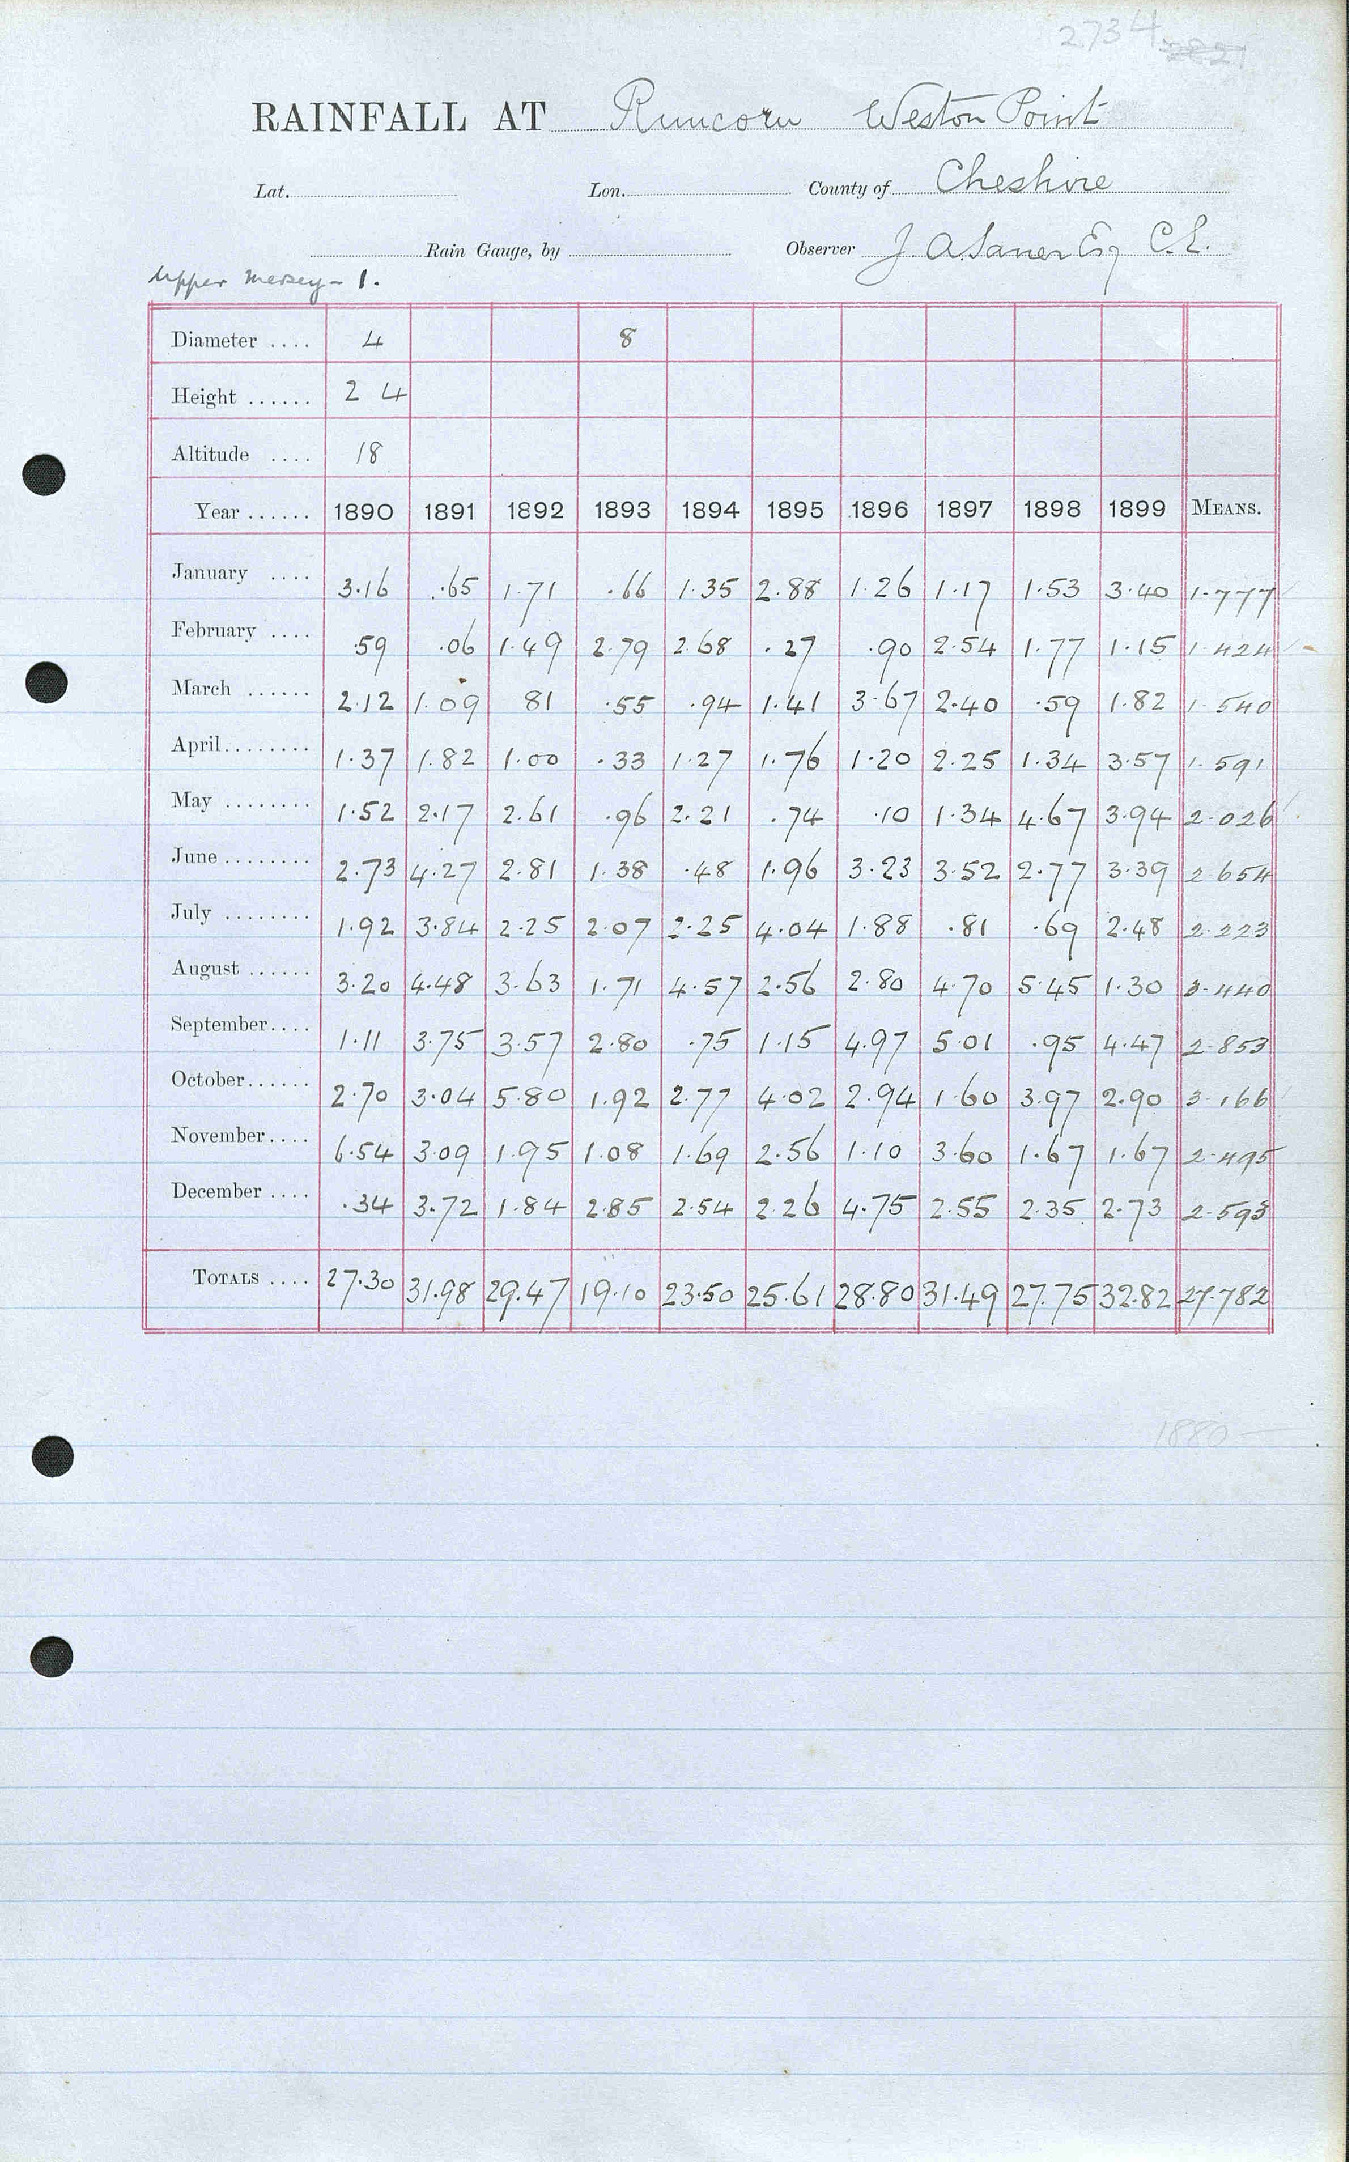 2734
RAINFALL AT Runcorn Weston Point
Lat. Lon. County of Cheshire
Rain Gauge, by Observer J A Saner Esq C.E.
Upper Mersey - 1.
Diameter .... 4 8
Height ...... 2 4
Altitude .... 18
Year ...... 1890 1891 1892 1893 1894 1895 1896 1897 1898 1899 MEANS.
January .... 3.16 .65 1.71 .66 1.35 2.88 1.26 1.17 1.53 3.40 1.777
February .... .59 .06 1.49 2.79 2.68 .27 .90 2.54 1.77 1.15 1.424
March ...... 2.12 1.09 81 .55 .94 1.41 3.67 2.40 .59 1.82 1.540
April........ 1.37 1.82 1.00 .33 1.27 1.76 1.20 2.25 1.34 3.57 1.591
May ........ 1.52 2.17 2.61 .96 2.21 .74 .10 1.34 4.67 3.94 2.026
June ........ 2.73 4.27 2.81 1.38 .48 1.96 3.23 3.52 2.77 3.39 2.654
July ........ 1.92 3.84 2.25 2.07 2.25 4.04 1.88 .81 .69 2.48 2.223
August ...... 3.20 4.48 3.63 1.71 4.57 2.56 2.80 4.70 5.45 1.30 3.440
September.... 1.11 3.75 3.57 2.80 .75 1.15 4.97 5.01 .95 4.47 2.853
October...... 2.70 3.04 5.80 1.92 2.77 4.02 2.94 1.60 3.97 2.90 3.166
November.... 6.54 3.09 1.95 1.08 1.69 2.56 1.10 3.60 1.67 1.67 2.495
December .... .34 3.72 1.84 2.85 2.54 2.26 4.75 2.55 2.35 2.73 2.593
TOTALS .... 27.30 31.98 29.47 19.10 23.50 25.61 28.80 31.49 27.75 32.82 27.782
1880 —